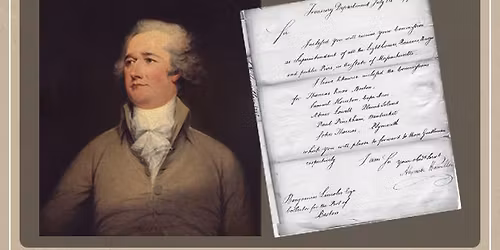 Treasury Department July
Sir
Inclosed you will receive your Commission
as Superintendant of all the Lighthouses, Beacons, Buoys
and public Piers, in the State of Massachusetts.
I have likewise inclosed the Commissions
for Thomas Knox Boston,
Samuel Houston, Cape Ann
Abner Lowell Plumb Island
Paul Pinkham, Nantucket
John Thomas, Plymouth
which you will please to forward to those Gentlemen
respectively. I am Sir your Obedt Servt
Alexander Hamilton
Benjamin Lincoln Esqr
Collector for the Port of
Boston